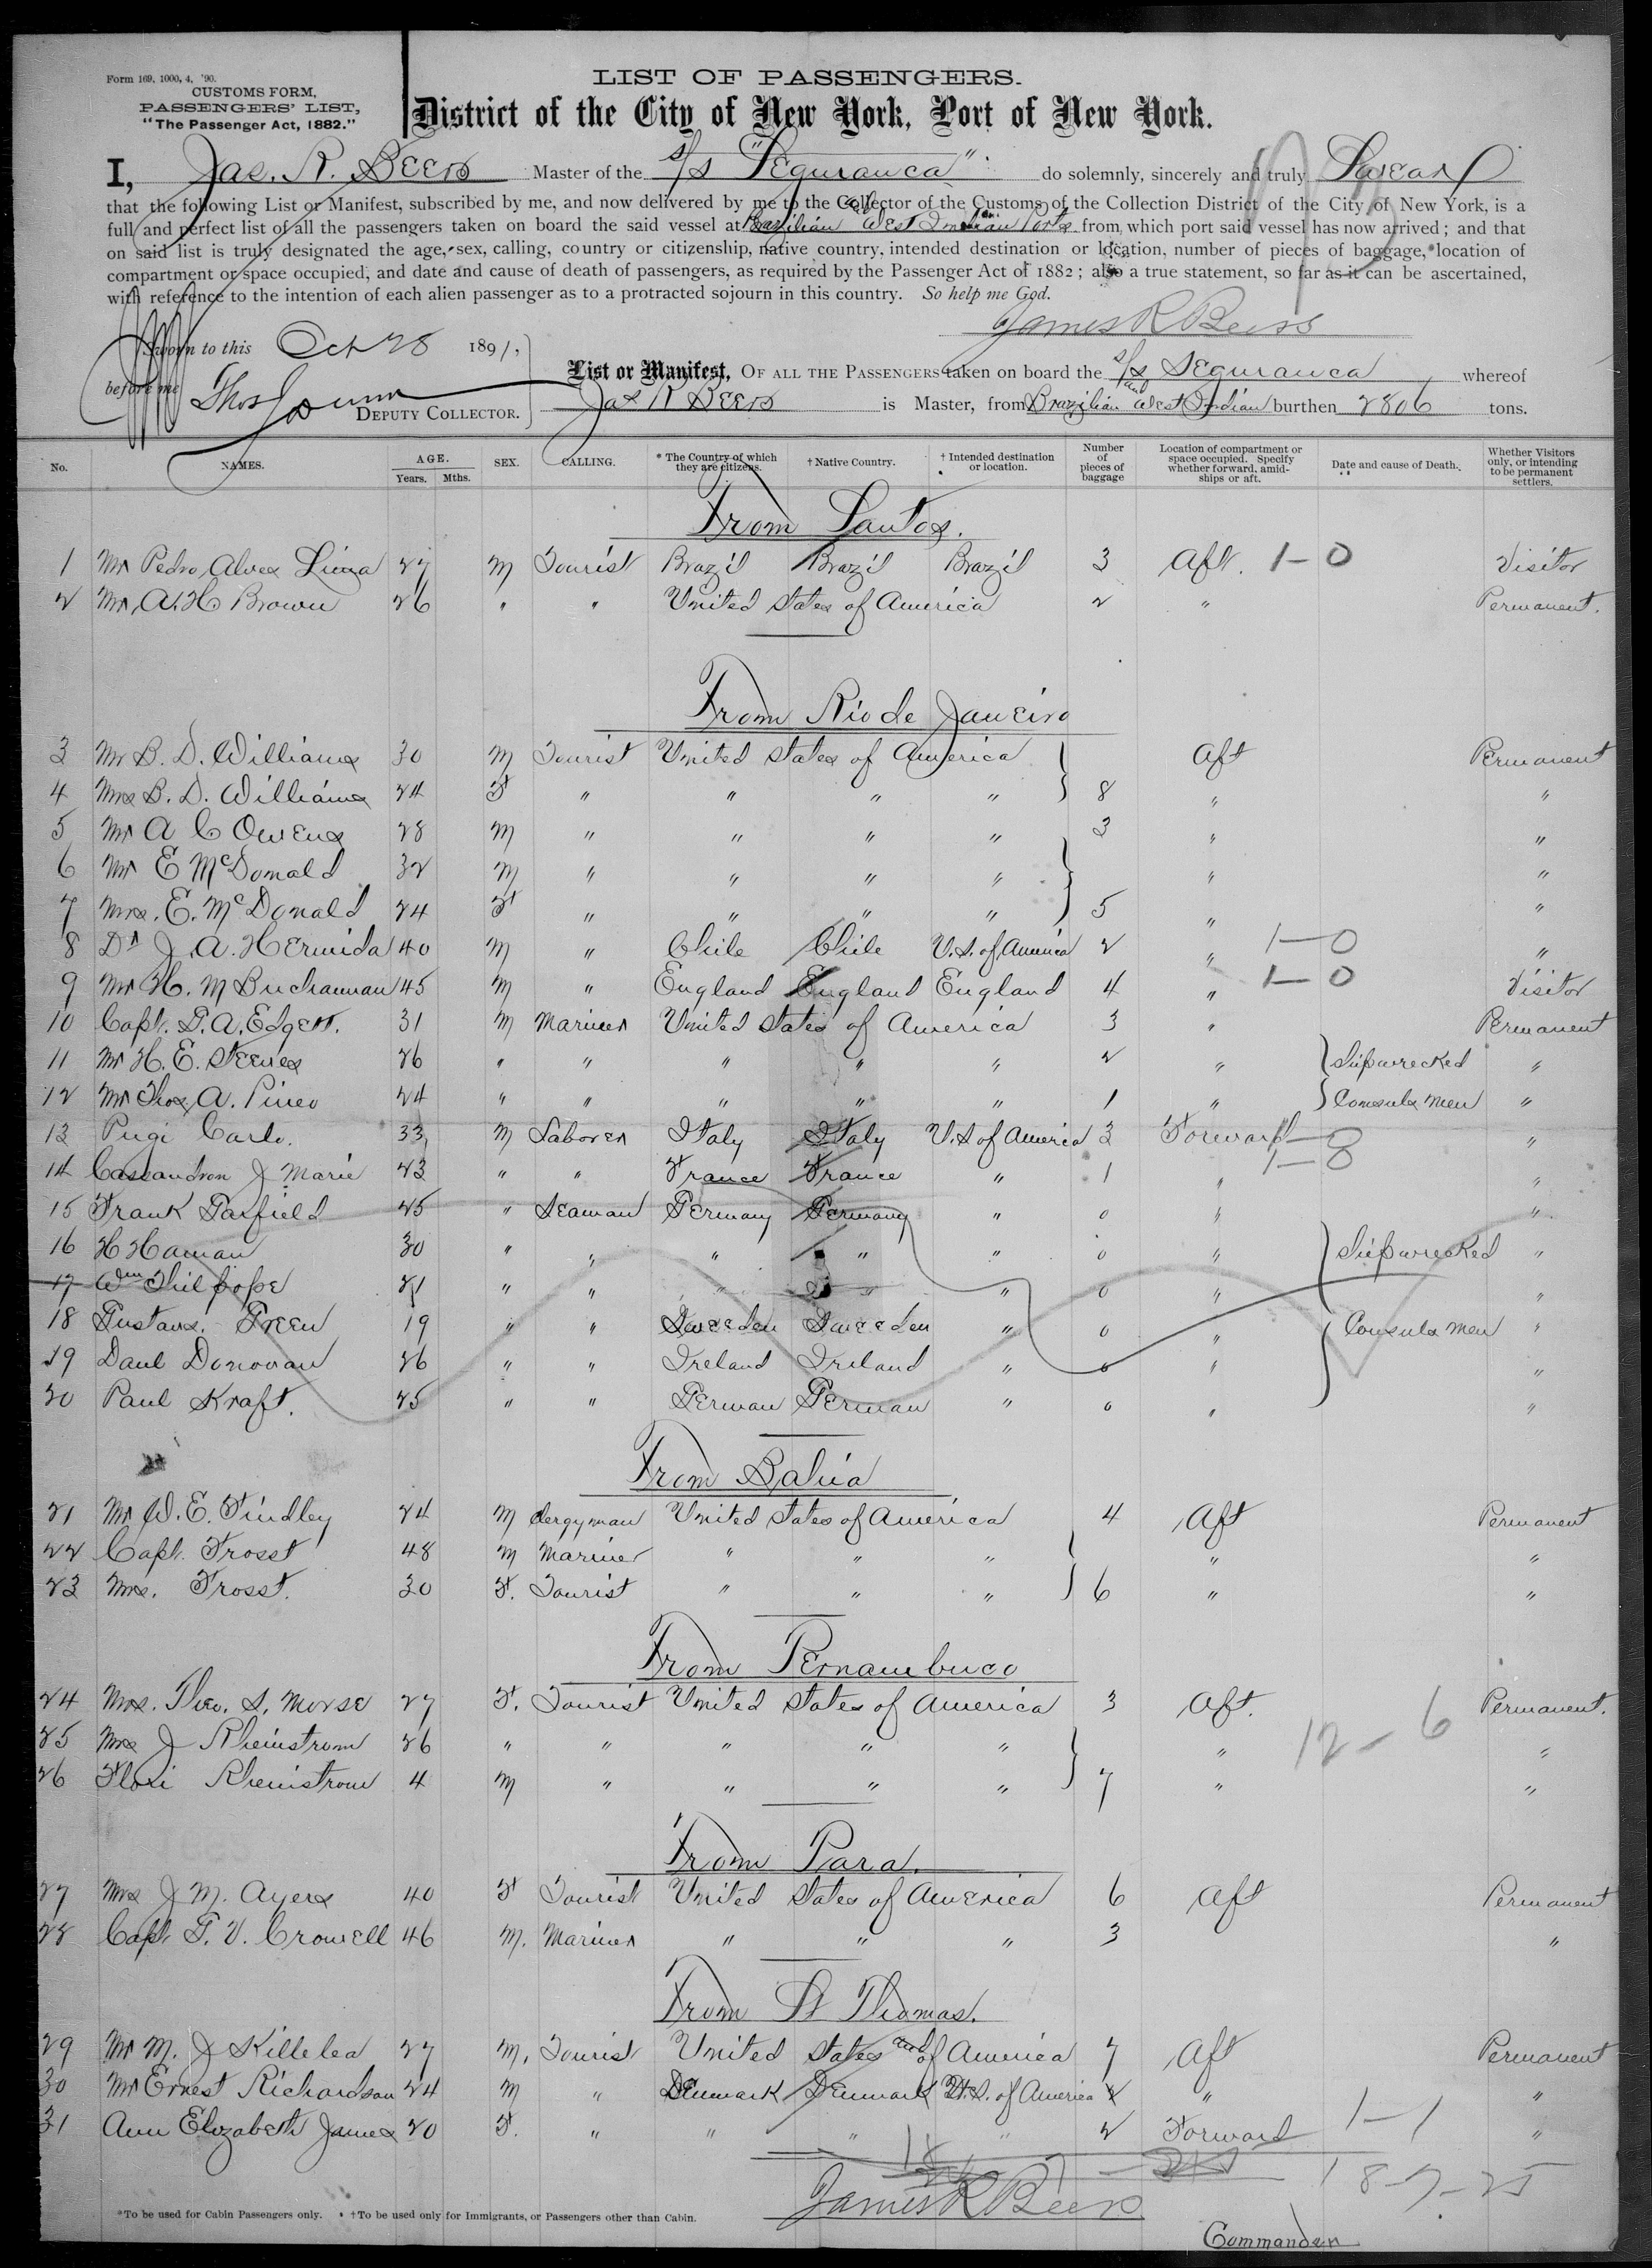 Form 169, 1000, 4, '90.
CUSTOMS FORM,
PASSENGERS' LIST,
"The Passenger Act, 1882."
LIST OF PASSENGERS.
District of the City of New York, Port of New York.
I, Jas. R. Beers Master of the s/s "Seguranca" do solemnly, sincerely and truly Swear
that the following List or Manifest, subscribed by me, and now delivered by me to the Collector of the Customs of the Collection District of the City of New York, is a
full and perfect list of all the passengers taken on board the said vessel at Brazilian and West Indian Ports from which port said vessel has now arrived; and that
on said list is truly designated the age, sex, calling, country or citizenship, native country, intended destination or location, number of pieces of baggage, location of
compartment or space occupied, and date and cause of death of passengers, as required by the Passenger Act of 1882; also a true statement, so far as it can be ascertained,
with reference to the intention of each alien passenger as to a protracted sojourn in this country. So help me God.
James R Beers
Sworn to this Oct 28 1891,
before me Thos
DEPUTY COLLECTOR.
List or Manifest, OF ALL THE PASSENGERS taken on board the s/s Seguranca whereof
Jas R Beers is Master, from Brazilian and West Indian burthen 2806 tons.
No. NAMES. AGE. Years. Mths. SEX. CALLING. * The Country of which they are citizens. † Native Country. † Intended destination or location. Number of pieces of baggage Location of compartment or space occupied. Specify whether forward, amidships or aft. Date and cause of Death. Whether Visitors only, or intending to be permanent settlers.
From Santos.
1 Mr Pedro Alves Lima 27 M Tourist Brazil Brazil Brazil 3 Aft. 1-0 Visitor
2 Mr A. H Brown 26 " " United States of America 2 " Permanent.
From Rio de Janeiro
3 Mr B. D. Williams 30 M Tourist United States of America Aft Permanent
4 Mrs B. D. Williams 24 F " " " " 8 " "
5 Mr A C Owens 28 M " " " " 3 " "
6 Mr E McDonald 32 M " " " " " "
7 Mrs. E. McDonald 24 F " " " " 5 " "
8 Dr J. A. Hermida 40 M " Chile Chile U.S. of America 2 " 1-0 "
9 Mr H. M Buchannan 45 M " England England England 4 " 1-0 Visitor
10 Capt. G. A. Edgett. 31 M Mariner United States of America 3 " Permanent
11 Mr H. E. Steeves 26 " " " " " 2 " Shipwrecked "
12 Mr Thos. A. Pineo 24 " " " " " 1 " Consuls men "
13 Pugi Carlo. 33 M Laborer Italy Italy U.S of America 2 Forward "
14 Cassandron J Marie 23 " " France France " 1 " "
15 Frank Garfield 25 " Seaman Germany Germany " 0 " "
16 H Haman 30 " " " " " 0 " Shipwrecked "
17 Wm Philpope 21 " " " " " 0 " "
18 Gustavs. Green 19 " " Sweeden Sweeden " 0 " Consuls men "
19 Danl Donovan 26 " " Ireland Ireland " 0 " "
20 Paul Kraft. 25 " " German German " 0 " "
From Bahia
21 Mr W. E. Findley 24 M Clergyman United States of America 4 Aft Permanent
22 Capt. Frosst 48 M Mariner " " " " "
23 Mrs. Frosst. 30 F. Tourist " " " 6 " "
From Pernambuco
24 Mrs. Theo. S. Morse 27 F. Tourist United States of America 3 Aft. Permanent.
25 Mrs J Rheinstrom 26 " " " " " " 12-6 "
26 Flori Rheinstrom 4 M " " " " 7 " "
From Para.
27 Mrs J M. Ayers 40 F Tourist United States of America 6 Aft Permanent
28 Capt G. V. Crowell 46 M. Mariner " " " 3 "
From St Thomas.
29 Mr M. J Killelea 27 M. Tourist United States of America 7 Aft Permanent
30 Mr Ernest Richardson 24 M " Denmark Denmark U.S. of America " "
31 Ann Elizabeth James 20 F. " " " " 2 Forward 1-1 "
18-7-25
James R Beers
Commander
*To be used for Cabin Passengers only. †To be used only for Immigrants, or Passengers other than Cabin.